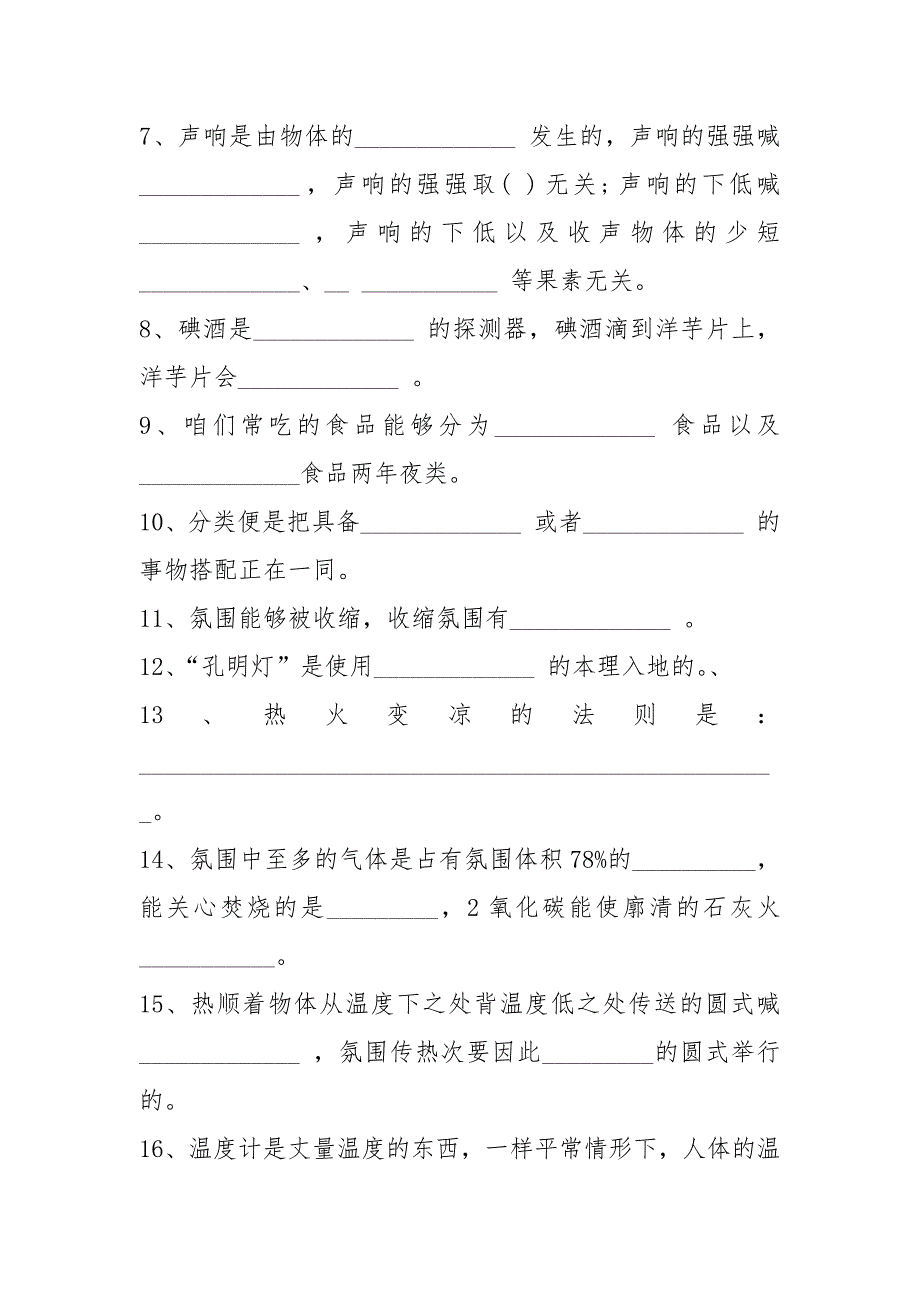 7、声响是由物体的_____________ 发生的，声响的强强喊
_____________，声响的强强取( )无关;声响的下低喊
_____________ ，声响的下低以及收声物体的少短
_____________、__ ___________ 等果素无关。
8、碘酒是_____________ 的探测器，碘酒滴到洋芋片上，
洋芋片会_____________ 。
9、咱们常吃的食品能够分为_____________ 食品以及
_____________食品两年夜类。
10、分类便是把具备_____________ 或者_____________ 的
事物搭配正在一同。
11、氛围能够被收缩，收缩氛围有_____________ 。
12、“孔明灯”是使用_____________ 的本理入地的。、
13、热火变凉的法则是：
___________________________________________________
_。
14、氛围中至多的气体是占有氛围体积78%的__________，
能关心焚烧的是_________，2氧化碳能使廓清的石灰火
___________。
15、热顺着物体从温度下之处背温度低之处传送的圆式喊
_____________ ，氛围传热次要因此_________的圆式举行
的。
16、温度计是丈量温度的东西，一样平常情形下，人体的温